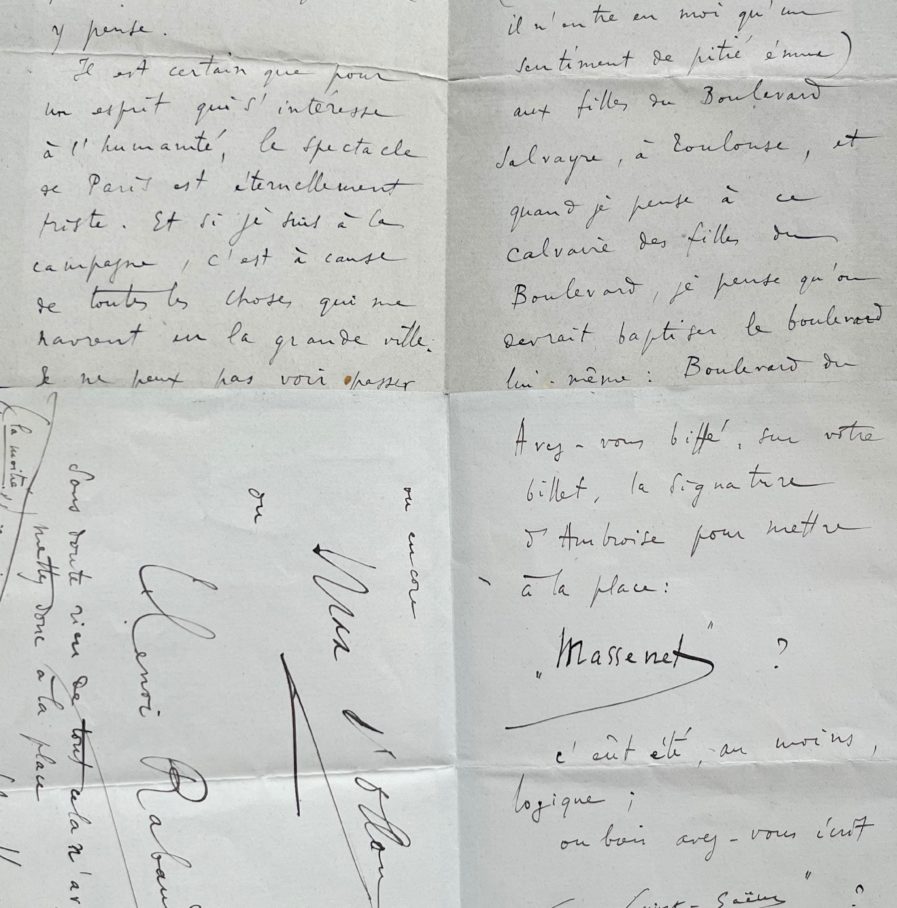 y pense.
Il est certain que pour
un esprit qui s'intéresse
à l'humanité, le spectacle
de Paris est éternellement
triste. Et si je suis à la
campagne, c'est à cause
de toutes les choses qui me
navrent en la grande ville.
Je ne peux pas voir passer
il n'entre en moi qu'un
sentiment de pitié émue)
aux filles du Boulevard
Salvayre, à Toulouse, et
quand je pense à ce
calvaire des filles du
Boulevard, je pense qu'on
devrait baptiser le boulevard
lui-même : Boulevard du
ou encore
Max d'Ollon
ou
Henri Rabau
Sans doute rien de tout cela n'a
mettez donc à la place
(la moitié
Avez-vous biffé, sur votre
billet, la signature
d'Ambroise pour mettre
à la place :
"Massenet" ?
c'eût été, au moins,
logique ;
ou bien avez-vous écrit
Saint-Saëns" ?